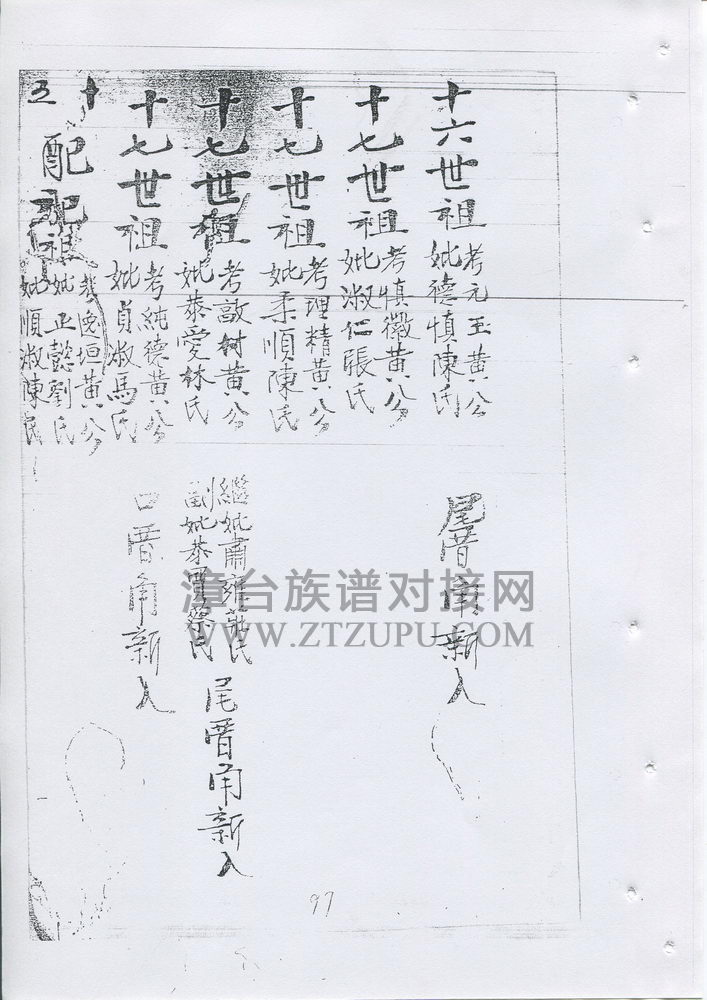 十六世祖
考元玉黃公
妣德慎陳氏
尾厝甪新入
十七世祖
考慎徽黃公
妣淑仁張氏
十七世祖
考理精黃公
妣柔順陳氏
十七世祖
考敦樹黃公
妣恭愛林氏
繼妣肅雍
氏
副妣恭
氏
尾厝甪新入
十七世祖
考純德黃公
妣貞淑馬氏
厝甪新入
十
配祖
晚垣黃公
妣正懿劉氏
妣順淑陳氏
97
漳台族谱对接网
WWW.ZTZUPU.COM